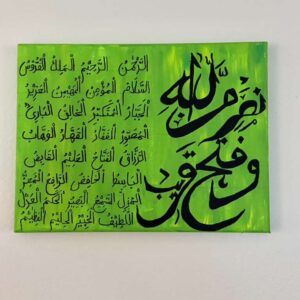 نصر من الله
وفتح قريب
الرحمن الرحيم الملك القدوس
السلام المؤمن المهيمن العزيز
الجبار المتكبر الخالق البارئ
المصور الغفار القهار الوهاب
الرزاق الفتاح العليم القابض
الباسط الخافض الرافع المعز
المذل السميع البصير الحكم العدل
اللطيف الخبير الحليم العظيم